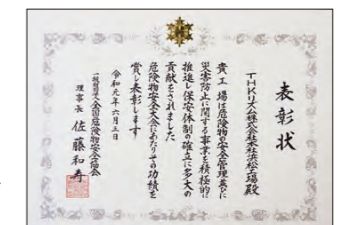 表彰状
THKリズム株式会社本社浜松工場殿
貴工場は危険物の安全管理並びに
災害防止に関する事業を積極的に
推進し保安体制の確立に多大の
貢献をされました
危険物安全大会にあたりその功績を
賞し表彰します
令和元年六月三日
一般財団法人全国危険物安全協会
理事長 佐藤和寿